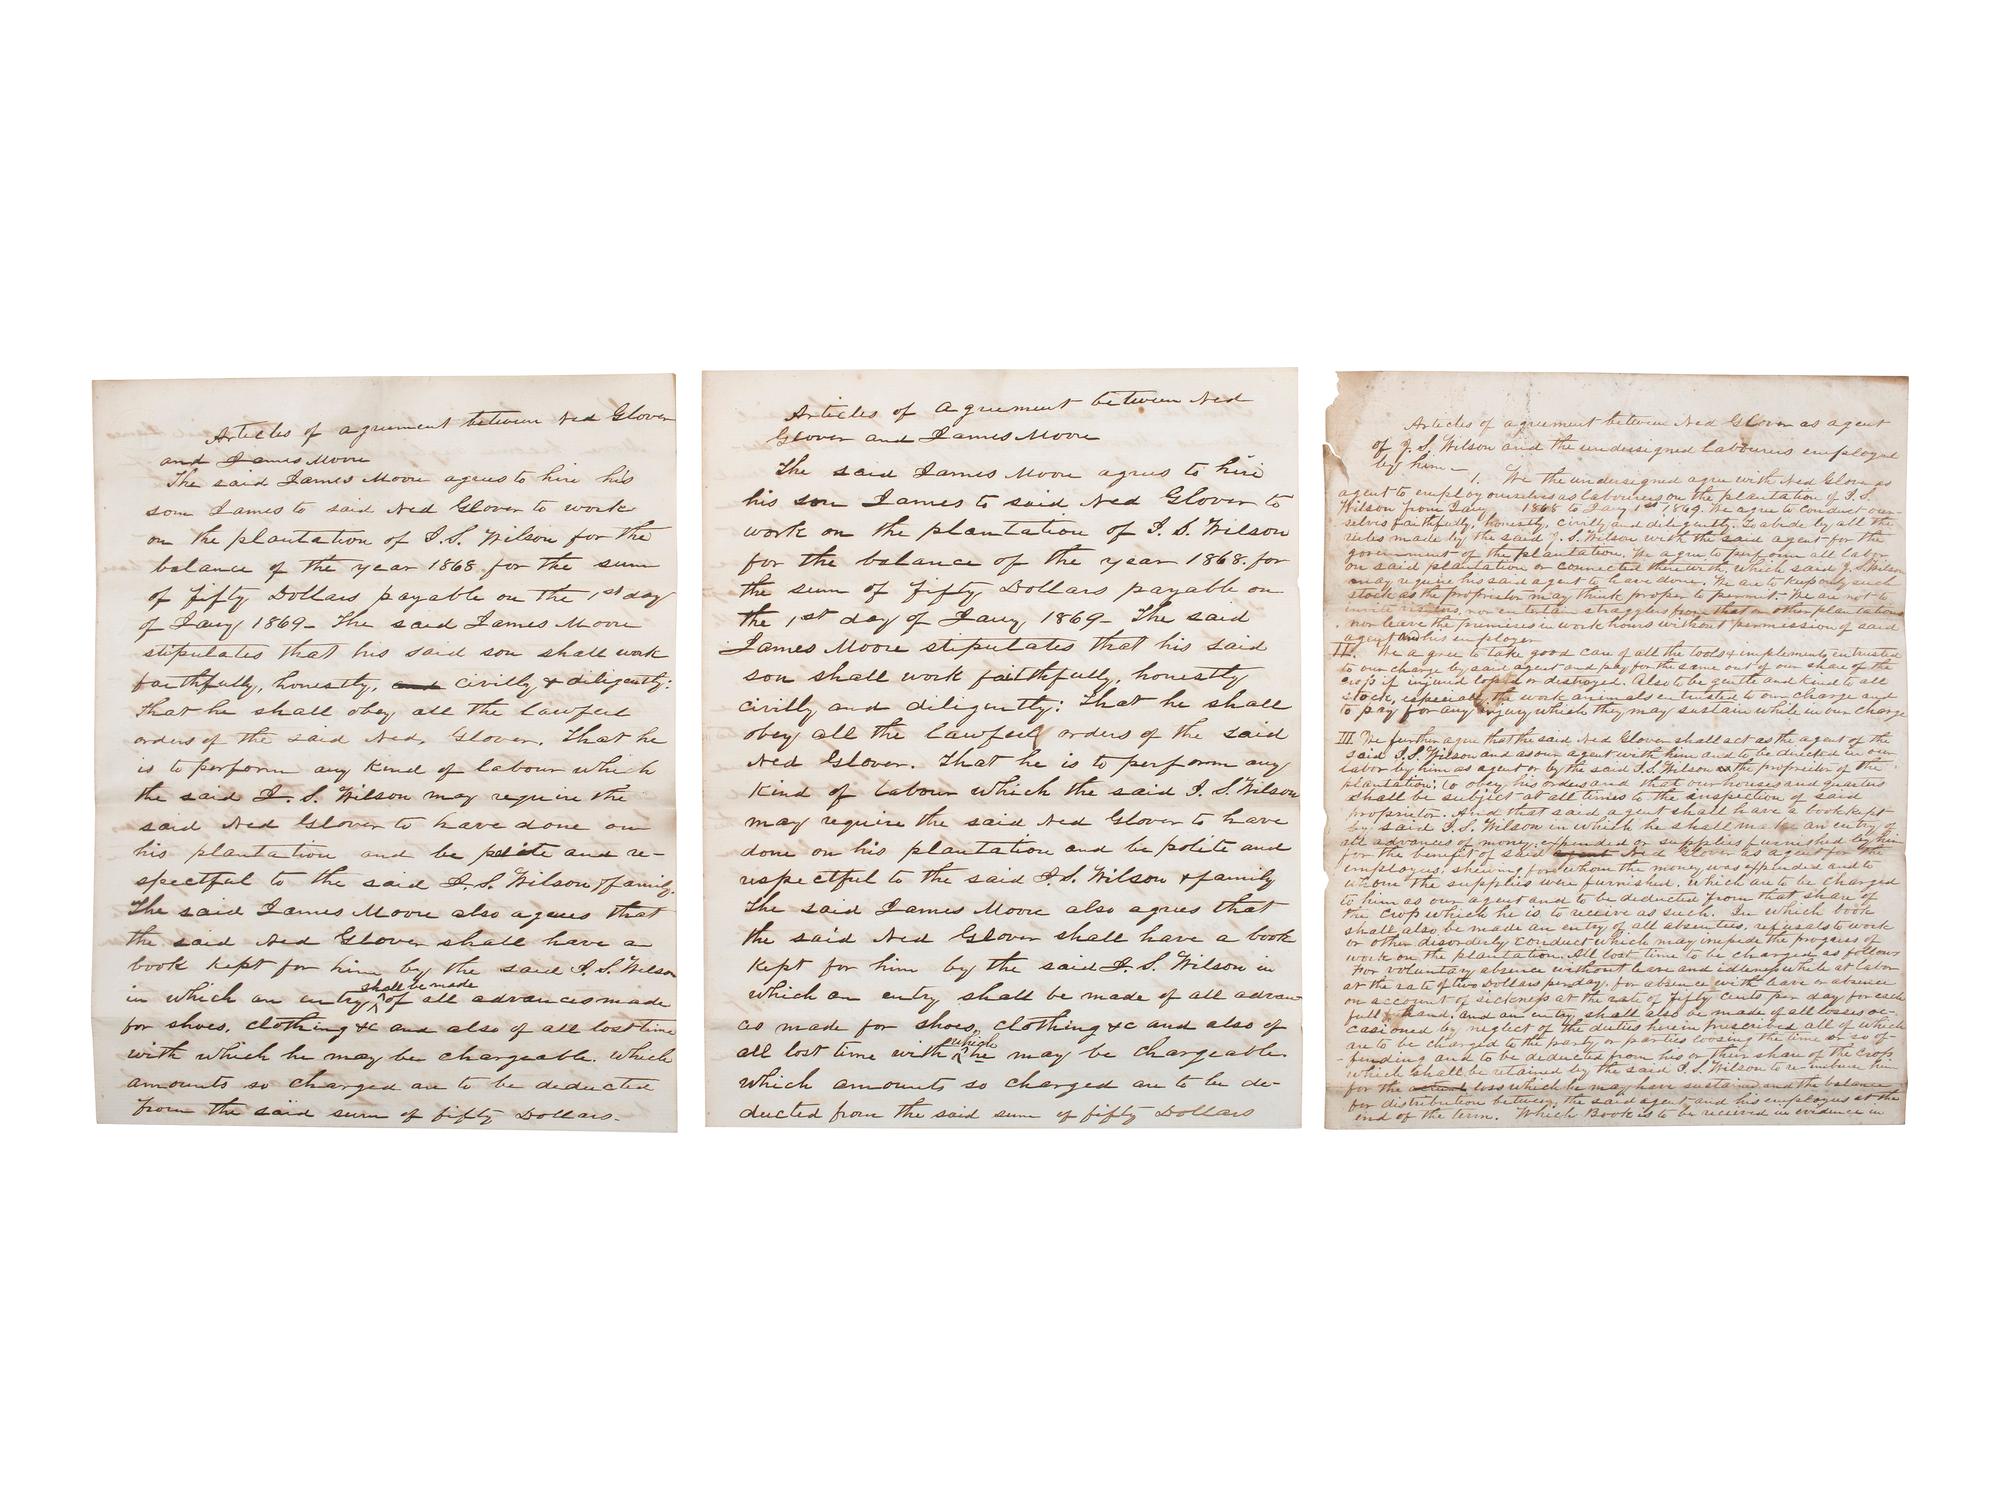 Articles of agreement between Ned Glover
and James Moore
The said James Moore agrees to hire his
son James to said Ned Glover to work
on the plantation of I. S. Wilson for the
balance of the year 1868 for the sum
of fifty Dollars payable on the 1st day
of Jany 1869 - The said James Moore
stipulates that his said son shall work
faithfully, honestly, and civilly & diligently:
That he shall obey all the lawful
orders of the said Ned Glover. That he
is to perform any kind of labour which
the said I. S. Wilson may require the
said Ned Glover to have done on
his plantation and be polite and re-
spectful to the said I. S. Wilson & family.
The said James Moore also agrees that
the said Ned Glover shall have a
book kept for him by the said I. S. Wilson
shall be made
in which an entry of all advances made
for shoes, clothing &c and also of all lost time
with which he may be chargeable. Which
amounts so charged are to be deducted
from the said sum of fifty Dollars.
Articles of agreement between Ned
Glover and James Moore
The said James Moore agrees to hire
his son James to said Ned Glover to
work on the plantation of I. S. Wilson
for the balance of the year 1868. for
the sum of fifty Dollars payable on
the 1st day of Jany 1869 - The said
James Moore stipulates that his said
son shall work faithfully, honestly
civilly and diligently: That he shall
obey all the lawful orders of the said
Ned Glover. That he is to perform any
kind of labour which the said I. S. Wilson
may require the said Ned Glover to have
done on his plantation and be polite and
respectful to the said I. S. Wilson & family
The said James Moore also agrees that
the said Ned Glover shall have a book
kept for him by the said I. S. Wilson in
which an entry shall be made of all advan-
ces made for shoes, clothing &c and also of
which
all lost time with he may be chargeable.
Which amounts so charged are to be de-
ducted from the said sum of fifty Dollars
Articles of agreement between Ned Glover as agent
of I. S. Wilson and the undersigned labourers employed
by him -
1. We the undersigned agree with Ned Glover as
agent to employ ourselves as labourers on the plantation of I. S.
Wilson from Jany 1868 to Jany 1st 1869. We agree to conduct our-
selves faithfully, honestly, civilly and diligently. To abide by all the
rules made by the said I. S. Wilson with the said agent for the
government of the plantation. We agree to perform all labor
on said plantation or connected there with, which said I. S. Wilson
may require his said agent to have done. We are to keep only such
stock as the proprietor may think proper to permit - We are not to
invite visitors, nor entertain stragglers from that or other plantations
nor leave the premises in work hours without permission of said
agent and his employer
II. We agree to take good care of all the tools & implements entrusted
to our charge by said agent and pay for the same out of our share of the
crop if injured lost or destroyed. Also to be gentle and kind to all
stock, especially the work animals entrusted to our charge and
to pay for any injury which they may sustain while in our charge
III. We further agree that the said Ned Glover shall act as the agent of the
said I. S. Wilson and as our agent with him and to be directed in our
labor by him as agent or by the said I. S. Wilson as the proprietor of the
plantation; to obey his orders and that our houses and quarters
shall be subject at all times to the inspection of said
proprietor. And that said agent shall have a book kept
by said I. S. Wilson in which he shall make an entry of
all advances of money expended or supplies furnished by him
for the benefit of said agent Ned Glover as agent for the
employees, shewing for whom the money was expended and to
whom the supplies were furnished. Which are to be charged
to him as our agent and to be deducted from that share of
the crop which he is to receive as such. In which book
shall also be made an entry of all absentees, refusals to work
or other disorderly conduct which may impede the progress of
work on the plantation. All lost time to be charged as follows
For voluntary absence without leave and idleness while at labor
at the rate of two Dollars per day. for absence with leave or absence
on account of sickness at the rate of fifty cents per day for each
full hand. and an entry shall also be made of all losses oc-
casioned by neglect of the duties herein prescribed all of which
are to be charged to the party or parties loosing the time or so of-
fending and to be deducted from his or their share of the crop
which shall be retained by the said I. S. Wilson to re-imburse him
for the loss which he may have sustained and the balance
for distribution between the said agent and his employees at the
end of the term. Which Book is to be received in evidence in